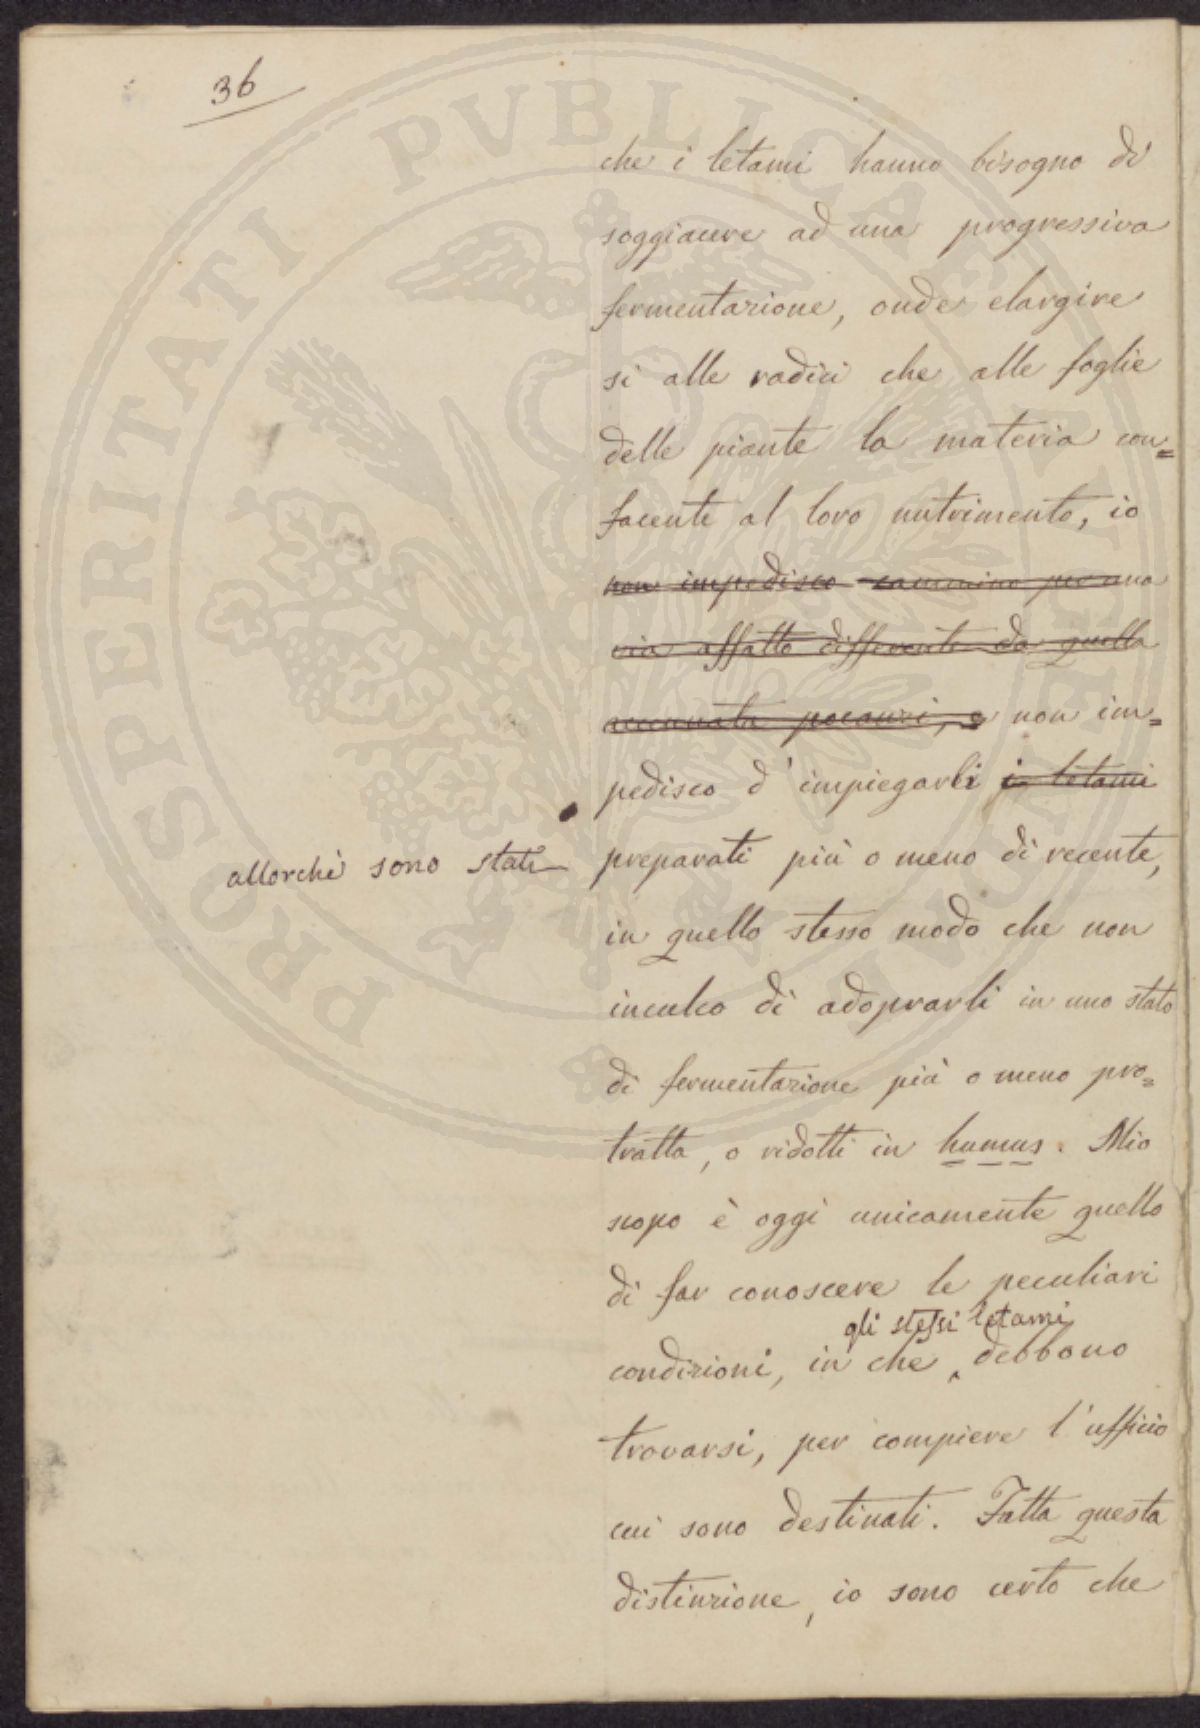 36
che i letami hanno bisogno di
soggiacere ad una progressiva
fermentazione, onde elargire
sì alle radici che alle foglie
delle piante la materia con=
facente al loro nutrimento, io
non impedisco cammino per una
via affatto differente da quella
accennata pocanzi, e non im=
pedisco d'impiegarli i letami
allorchè sono stati
preparati più o meno di recente,
in quello stesso modo che non
inculco di adoprarli in uno stato
di fermentazione più o meno pro=
tratta, o ridotti in humus. Mio
scopo è oggi unicamente quello
di far conoscere le peculiari
gli stessi letami
condizioni, in che debbono
trovarsi, per compiere l'ufficio
cui sono destinati. Fatta questa
distinzione, io sono certo che
PROSPERITATI PVBLICAE AVGENDAE